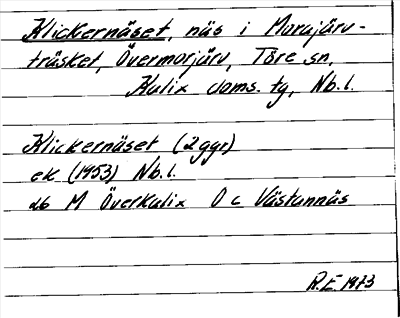 Klickernäset, näs i Morajärv-
träsket, Övermorjärv, Töre sn,
Kalix doms. tg, Nb. l.
Klickernäset (2 ggr)
ek (1953) Nb. l.
26 M Överkalix 0 c Västannäs
R.E 1973